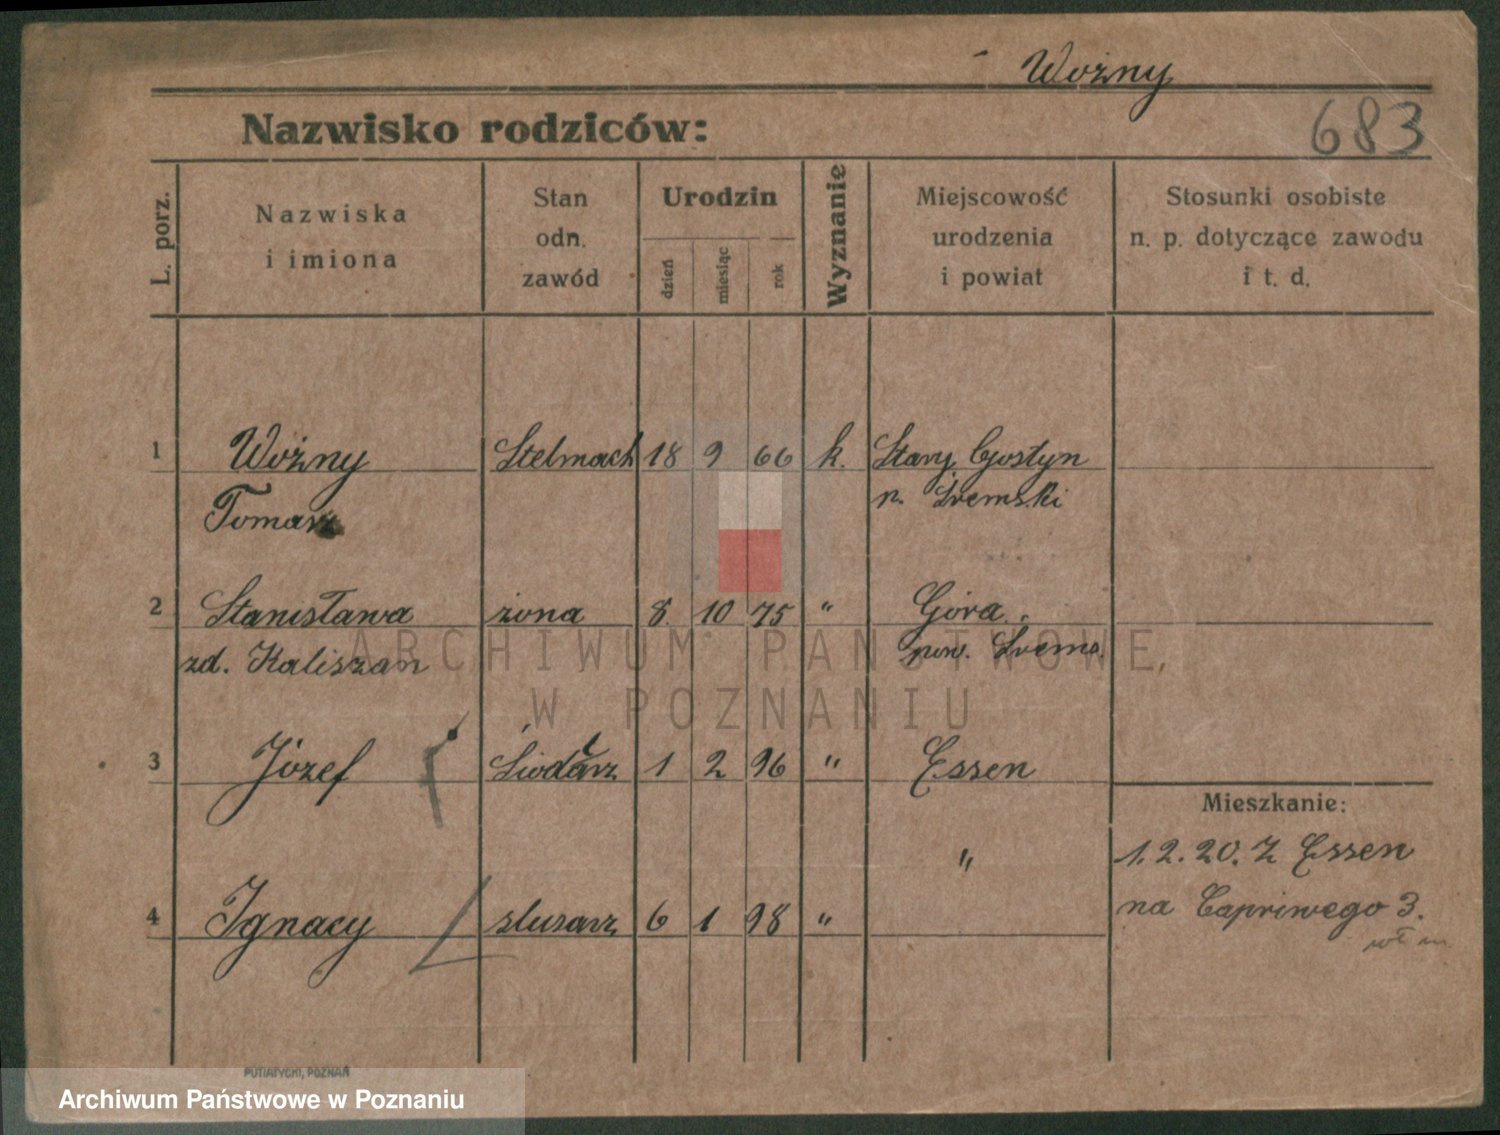 Wożny
Nazwisko rodziców:
683
L. porz.
Nazwiska
i imiona
Stan
odn.
zawód
Urodzin
dzień
miesiąc
rok
Wyznanie
Miejscowość
urodzenia
i powiat
Stosunki osobiste
n. p. dotyczące zawodu
i t. d.
1 Woźny Stelmach 18 9 66 k. Stary Gostyn
Tomasz p. Śremski
2 Stanisława żona 8 10 75 " Góra
zd. Kaliszan pow. Śrems.
ARCHIWUM PAŃSTWOWE
W POZNANIU
3 Józef 1 2 96 " Essen
Mieszkanie:
" 1.2.20. z Essen
4 Ignacy slusarz 6 1 98 " na Capriwego 3.
PUTIATYCKI, POZNAŃ
Archiwum Państwowe w Poznaniu